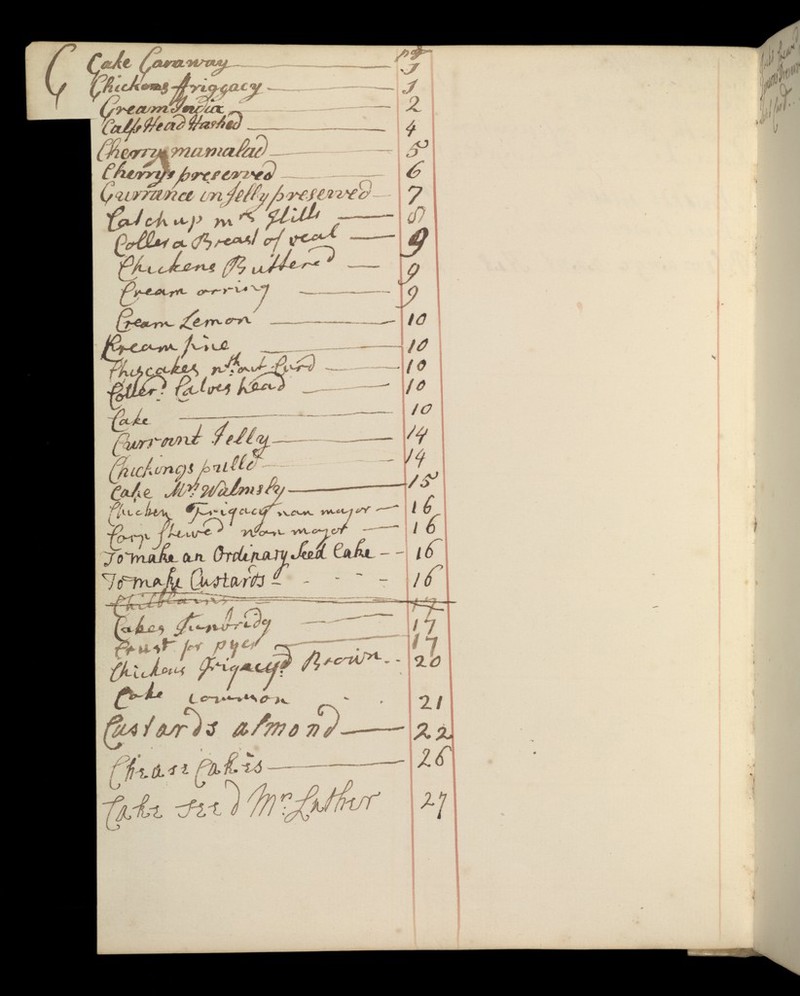 C
pag
Cake Caraway 1
Chickens friggacy 1
Cream India 2
Calfs Head Hashed 4
Cherry mamalad 5
Cherrys preserved 6
Currance in Jelly preserved 7
Catchup mrs Hills 8
Coller a Breast of veal 9
Chickens Buttered 9
Cream orring 9
Cream Lemon 10
Cream pine 10
Chiscakes wthout Curd 10
Coller'd Calves head 10
Cake 10
Currant Jelly 14
Chickings pulld 14
Cake Mrs Walmsly 15
Chicken Frigacy nan major 16
Carp Stewed nan major 16
To make an Ordinary Seed Cake 16
To make Custards 16
Chilblains 17
Cakes Tunbridg 17
Crust for pyes 17
Chickens Frigacyd Brown 20
Cake common 21
Custards almond 22
Chease Cakes 26
Cake seed Mrs Luther 27